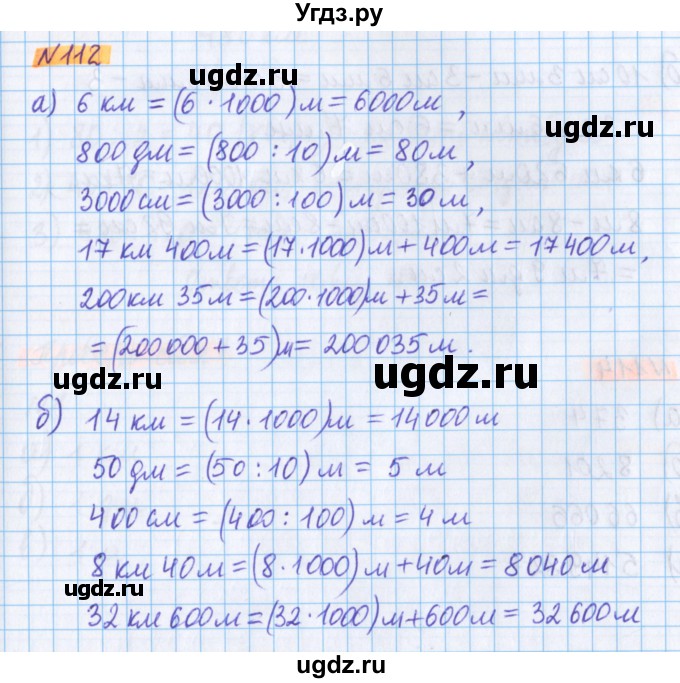 Угдз.ру
N112
ugdz.ru
а) 6 км = (6 · 1000) м = 6000 м ,
ugdz.ru
800 дм = (800 : 10) м = 80 м ,
3000 см = (3000 : 100) м = 30 м ,
ugdz.ru
17 км 400 м = (17·1000) м + 400 м = 17 400 м ,
200 км 35 м = (200·1000) м + 35 м =
= (200 000 + 35) м = 200 035 м .
ugdz.ru ugdz.ru
б) 14 км = (14·1000) м = 14 000 м
ugdz.ru
50 дм = (50 : 10) м = 5 м
400 см = (400 : 100) м = 4 м
ugdz.ru
8 км 40 м = (8·1000) м + 40 м = 8040 м
ugdz.ru ugdz.ru
32 км 600 м = (32·1000) м + 600 м = 32 600 м
ugdz.ru